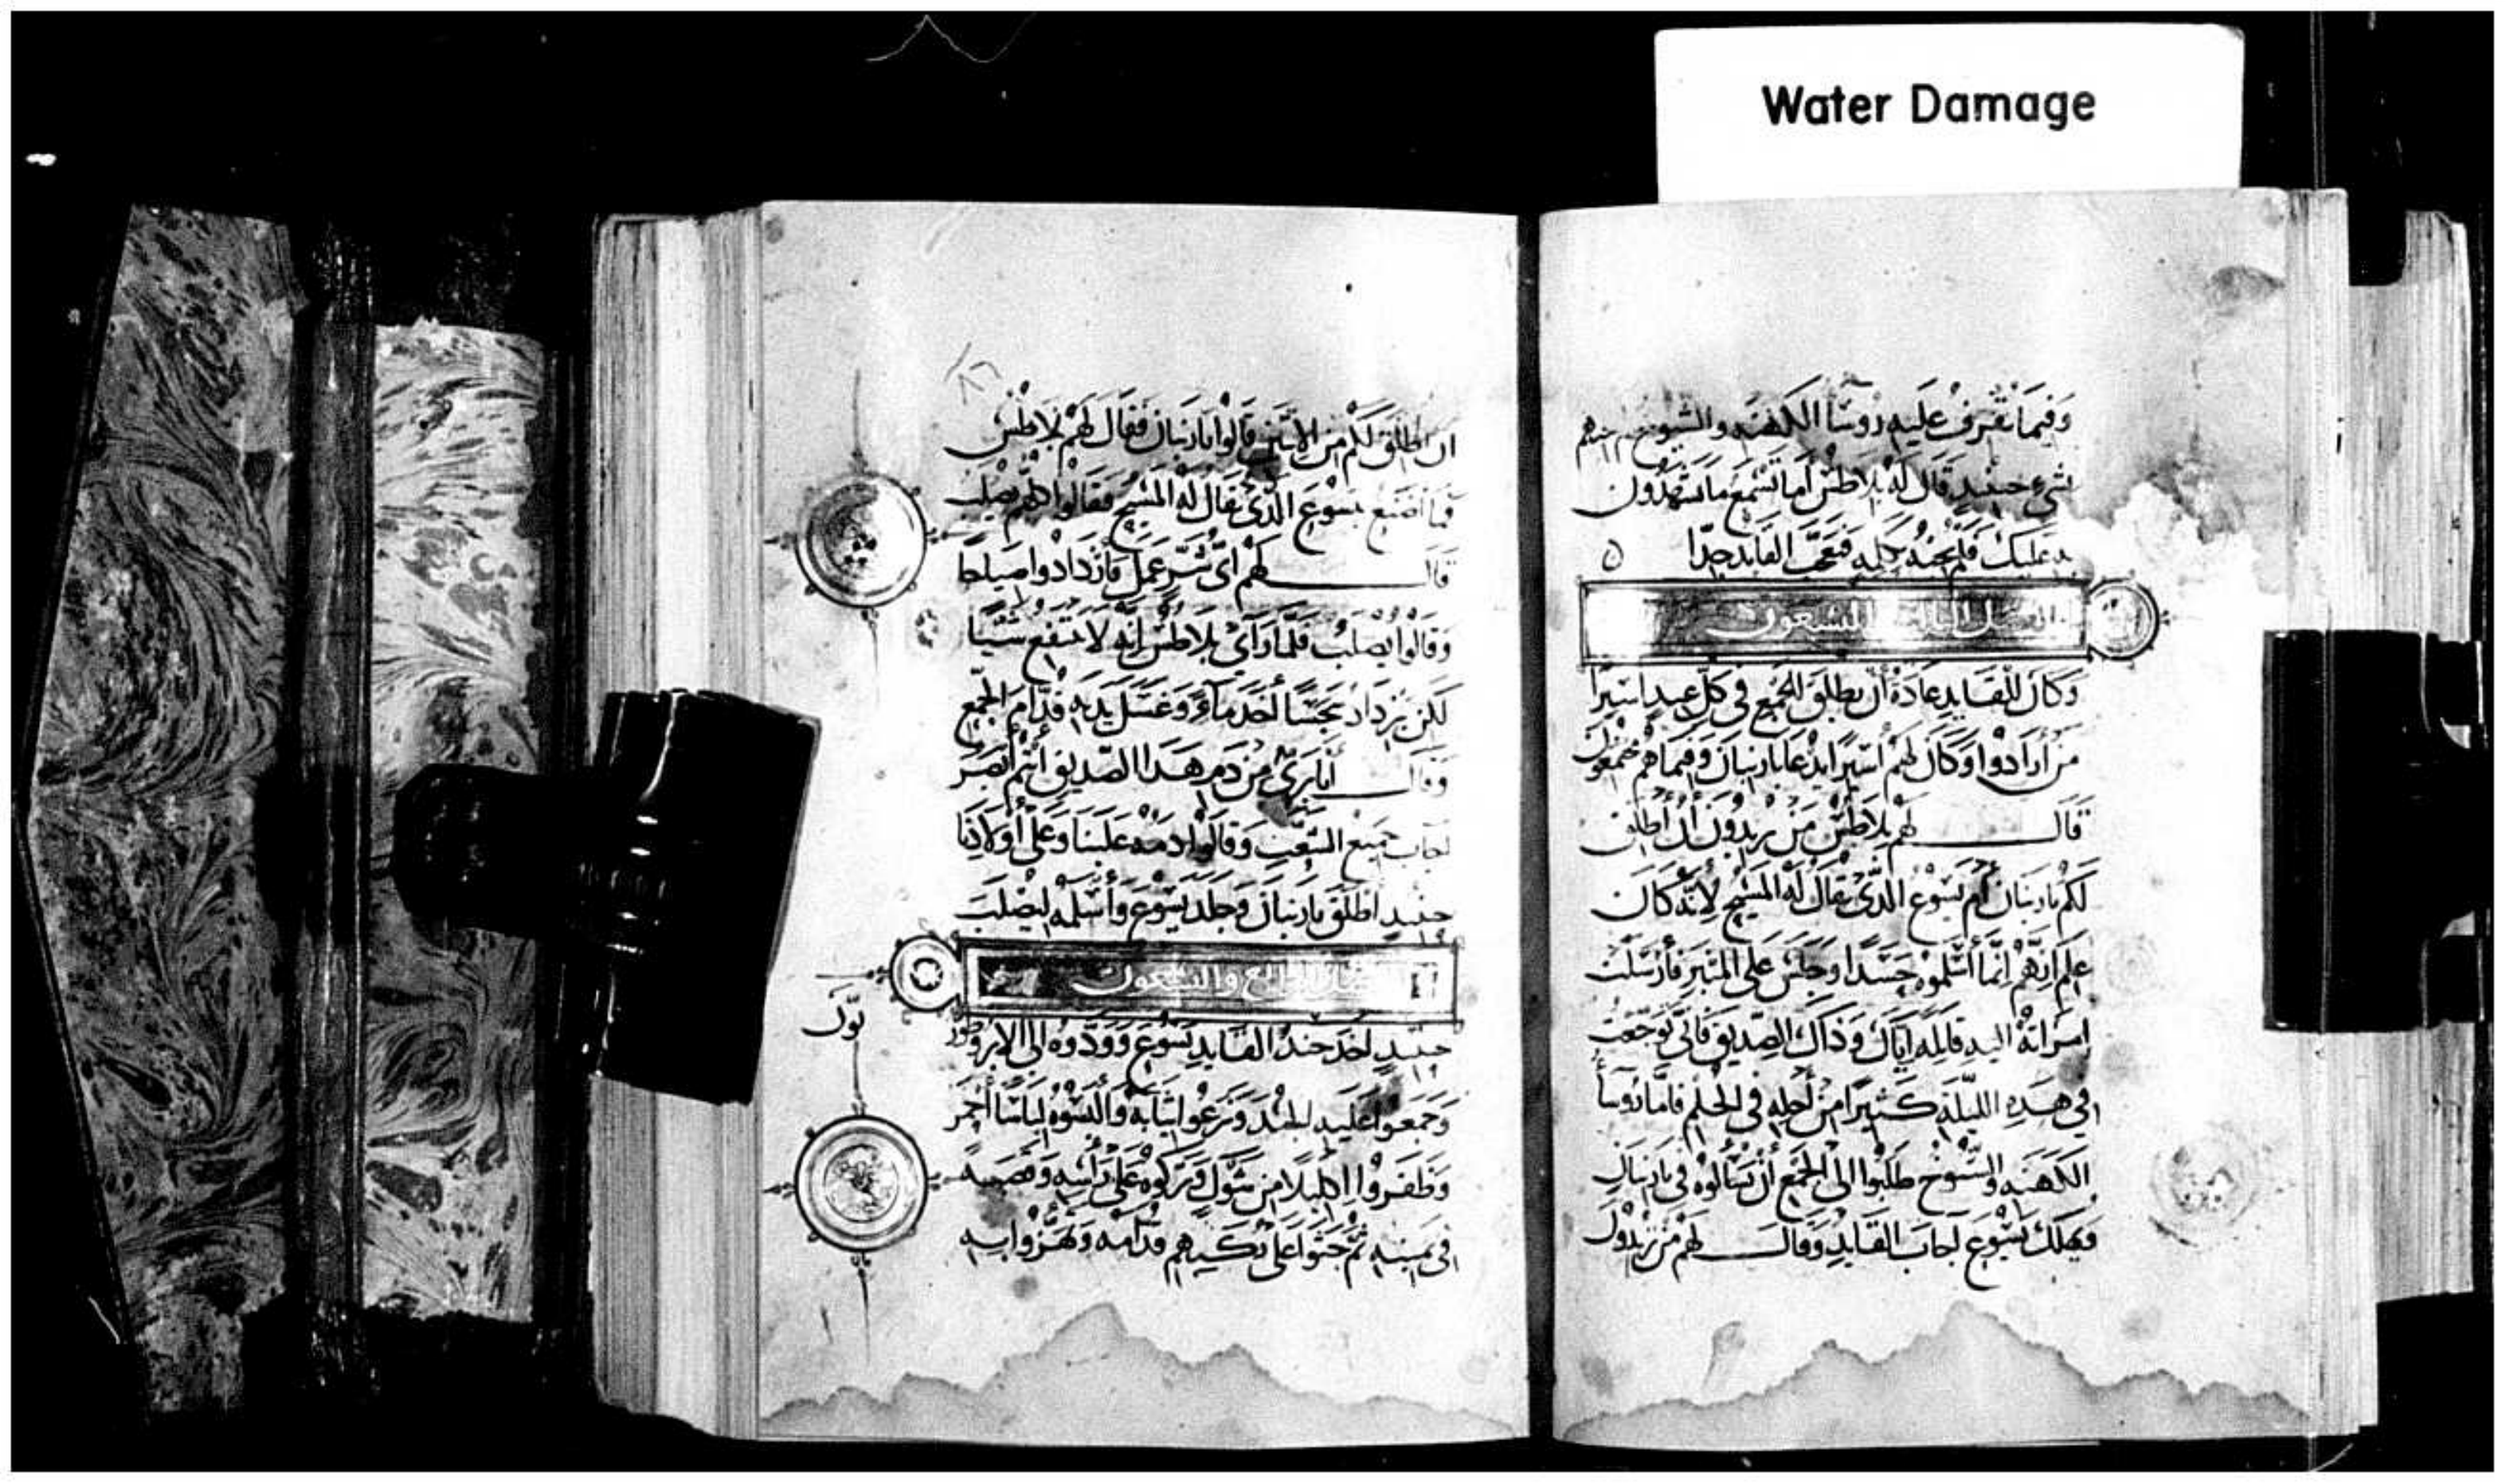 Water Damage
وَفيمَا يقترف عَليه روسَا الكهنَه والشيوخ لم يجبهم
بشي حينيد قال له بلاطس اما تسمع ما يشهدون
به عليك فلم يجبه بكلمه فتعجب القايد جدا
الفصل الثالث والتسعون
وَكان للقايد عَادَة أن يطلق للجمع في كل عيد اسيرًا
من أرادوا وكان لهم أسير ايدعا باربنان وفيما هم مجتمعون
قال لهم بلاطس من تريدون أن أطلق
لكم باربنان أم يسوع الذي يقال له المسيح لانه كان
علم انهم انما أسلموه حسدا وجلس على المنبر فأرسلت
امراته اليه قايله اياك وذاك الصديق فاني توجعت
في هذه الليلة كثيرًا من أجله في الحلم فاما روسا
الكهنه والشيوخ طلبوا الى الجمع أن يسالوه في باربنان
ويهلك يسوع أجاب القايد وقال لهم من تريدون
ان اطلق لكم من الاثنين قالوا باربنان فقال لهم بلاطس
فما اصنع بيسوع الذي يقال له المسيح فقالوا كلهم يصلب
قال لهم أي شر عمل فازدادوا صياحا
وقالوا يصلب فلما رأى بلاطس انه لا ينتفع شيا
لكن يزداد تجسا أخذ ماء وغسل يديه قدام الجمع
وقال أنا بري من دم هذا الصديق أنتم أبصر
أجاب جميع الشعب وقالوا دمه علينا وعلى أولادنا
حينيد أطلق باربنان وجلد يسوع وأسلمه ليصلب
الفصل الرابع والتسعون
حينيد أخذ جند القايد يسوع وودوه الى الابروطور
وجمعوا عليه الجند ونزعوا ثيابه وألبسوه لباسا أحمر
وظفروا اكليلا من شوك وتركوه على رأسه وقصبه
في يمينه ثم جثوا على ركبهم قدامه وهزوا به